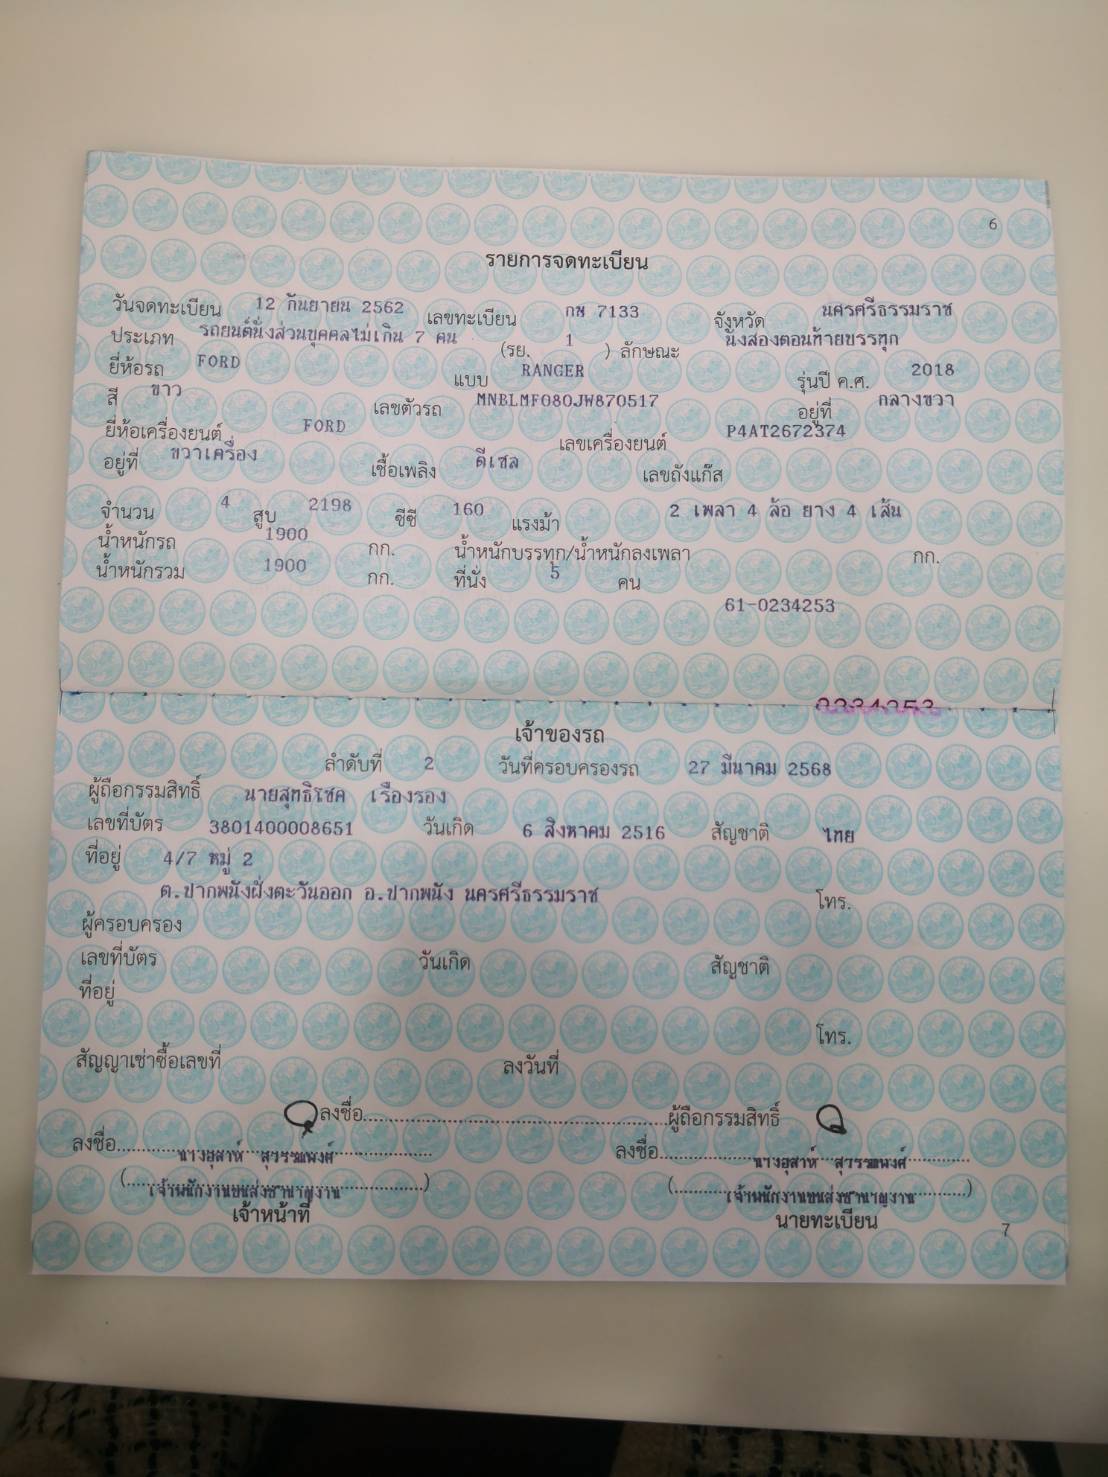 6
รายการจดทะเบียน
วันจดทะเบียน 12 กันยายน 2562 เลขทะเบียน กษ 7133 จังหวัด นครศรีธรรมราช
ประเภท รถยนต์นั่งส่วนบุคคลไม่เกิน 7 คน (รย. 1 ) ลักษณะ นั่งสองตอนท้ายบรรทุก
ยี่ห้อรถ FORD แบบ RANGER รุ่นปี ค.ศ. 2018
สี ขาว เลขตัวรถ MNBLMF080JW870517 อยู่ที่ กลางขวา
ยี่ห้อเครื่องยนต์ FORD เลขเครื่องยนต์ P4AT2672374
อยู่ที่ ขวาเครื่อง เชื้อเพลิง ดีเซล เลขถังแก๊ส
จำนวน 4 สูบ 2198 ซีซี 160 แรงม้า 2 เพลา 4 ล้อ ยาง 4 เส้น
น้ำหนักรถ 1900 กก. น้ำหนักบรรทุก/น้ำหนักลงเพลา กก.
น้ำหนักรวม 1900 กก. ที่นั่ง 5 คน
61-0234253
0234253
เจ้าของรถ
ลำดับที่ 2 วันที่ครอบครองรถ 27 มีนาคม 2568
ผู้ถือกรรมสิทธิ์ นายสุทธิโชค เรืองรอง
เลขที่บัตร 3801400008651 วันเกิด 6 สิงหาคม 2516 สัญชาติ ไทย
ที่อยู่ 4/7 หมู่ 2
ต.ปากพนังฝั่งตะวันออก อ.ปากพนัง นครศรีธรรมราช โทร.
ผู้ครอบครอง
เลขที่บัตร วันเกิด สัญชาติ
ที่อยู่
โทร.
สัญญาเช่าซื้อเลขที่ ลงวันที่
ลงชื่อ ผู้ถือกรรมสิทธิ์
ลงชื่อ นางอุสาห์ สุวรรณพงศ์ ลงชื่อ นางอุสาห์ สุวรรณพงศ์
(เจ้าพนักงานขนส่งชำนาญงาน) (เจ้าพนักงานขนส่งชำนาญงาน)
เจ้าหน้าที่ นายทะเบียน
7